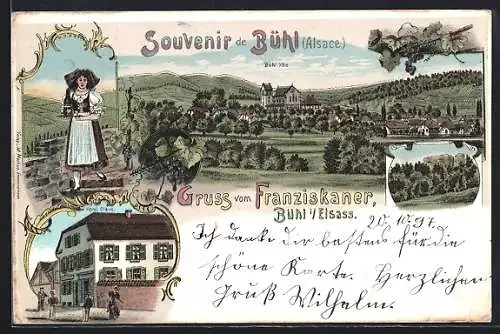 Souvenir de Bühl (Alsace)
Bühl
Gruss vom Franziskaner,
Bühl i/Elsass.
20. 10. 97.
Ich danke Dir bestens für die
schöne Karte. Herzlichen
Gruß Wilhelm.